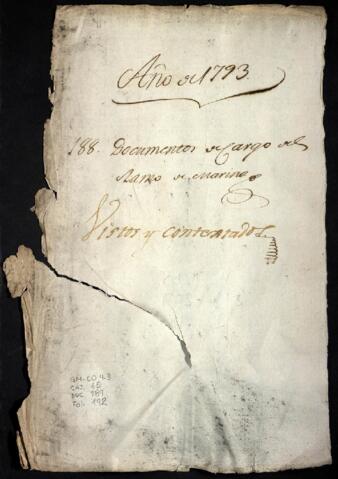 Año de 1793.
188. Documentos de Cargo del
Ramo de Marina
Vistos y contextados
GM-CO 43
CAJ. 15
DOC. 789
FOL. 192